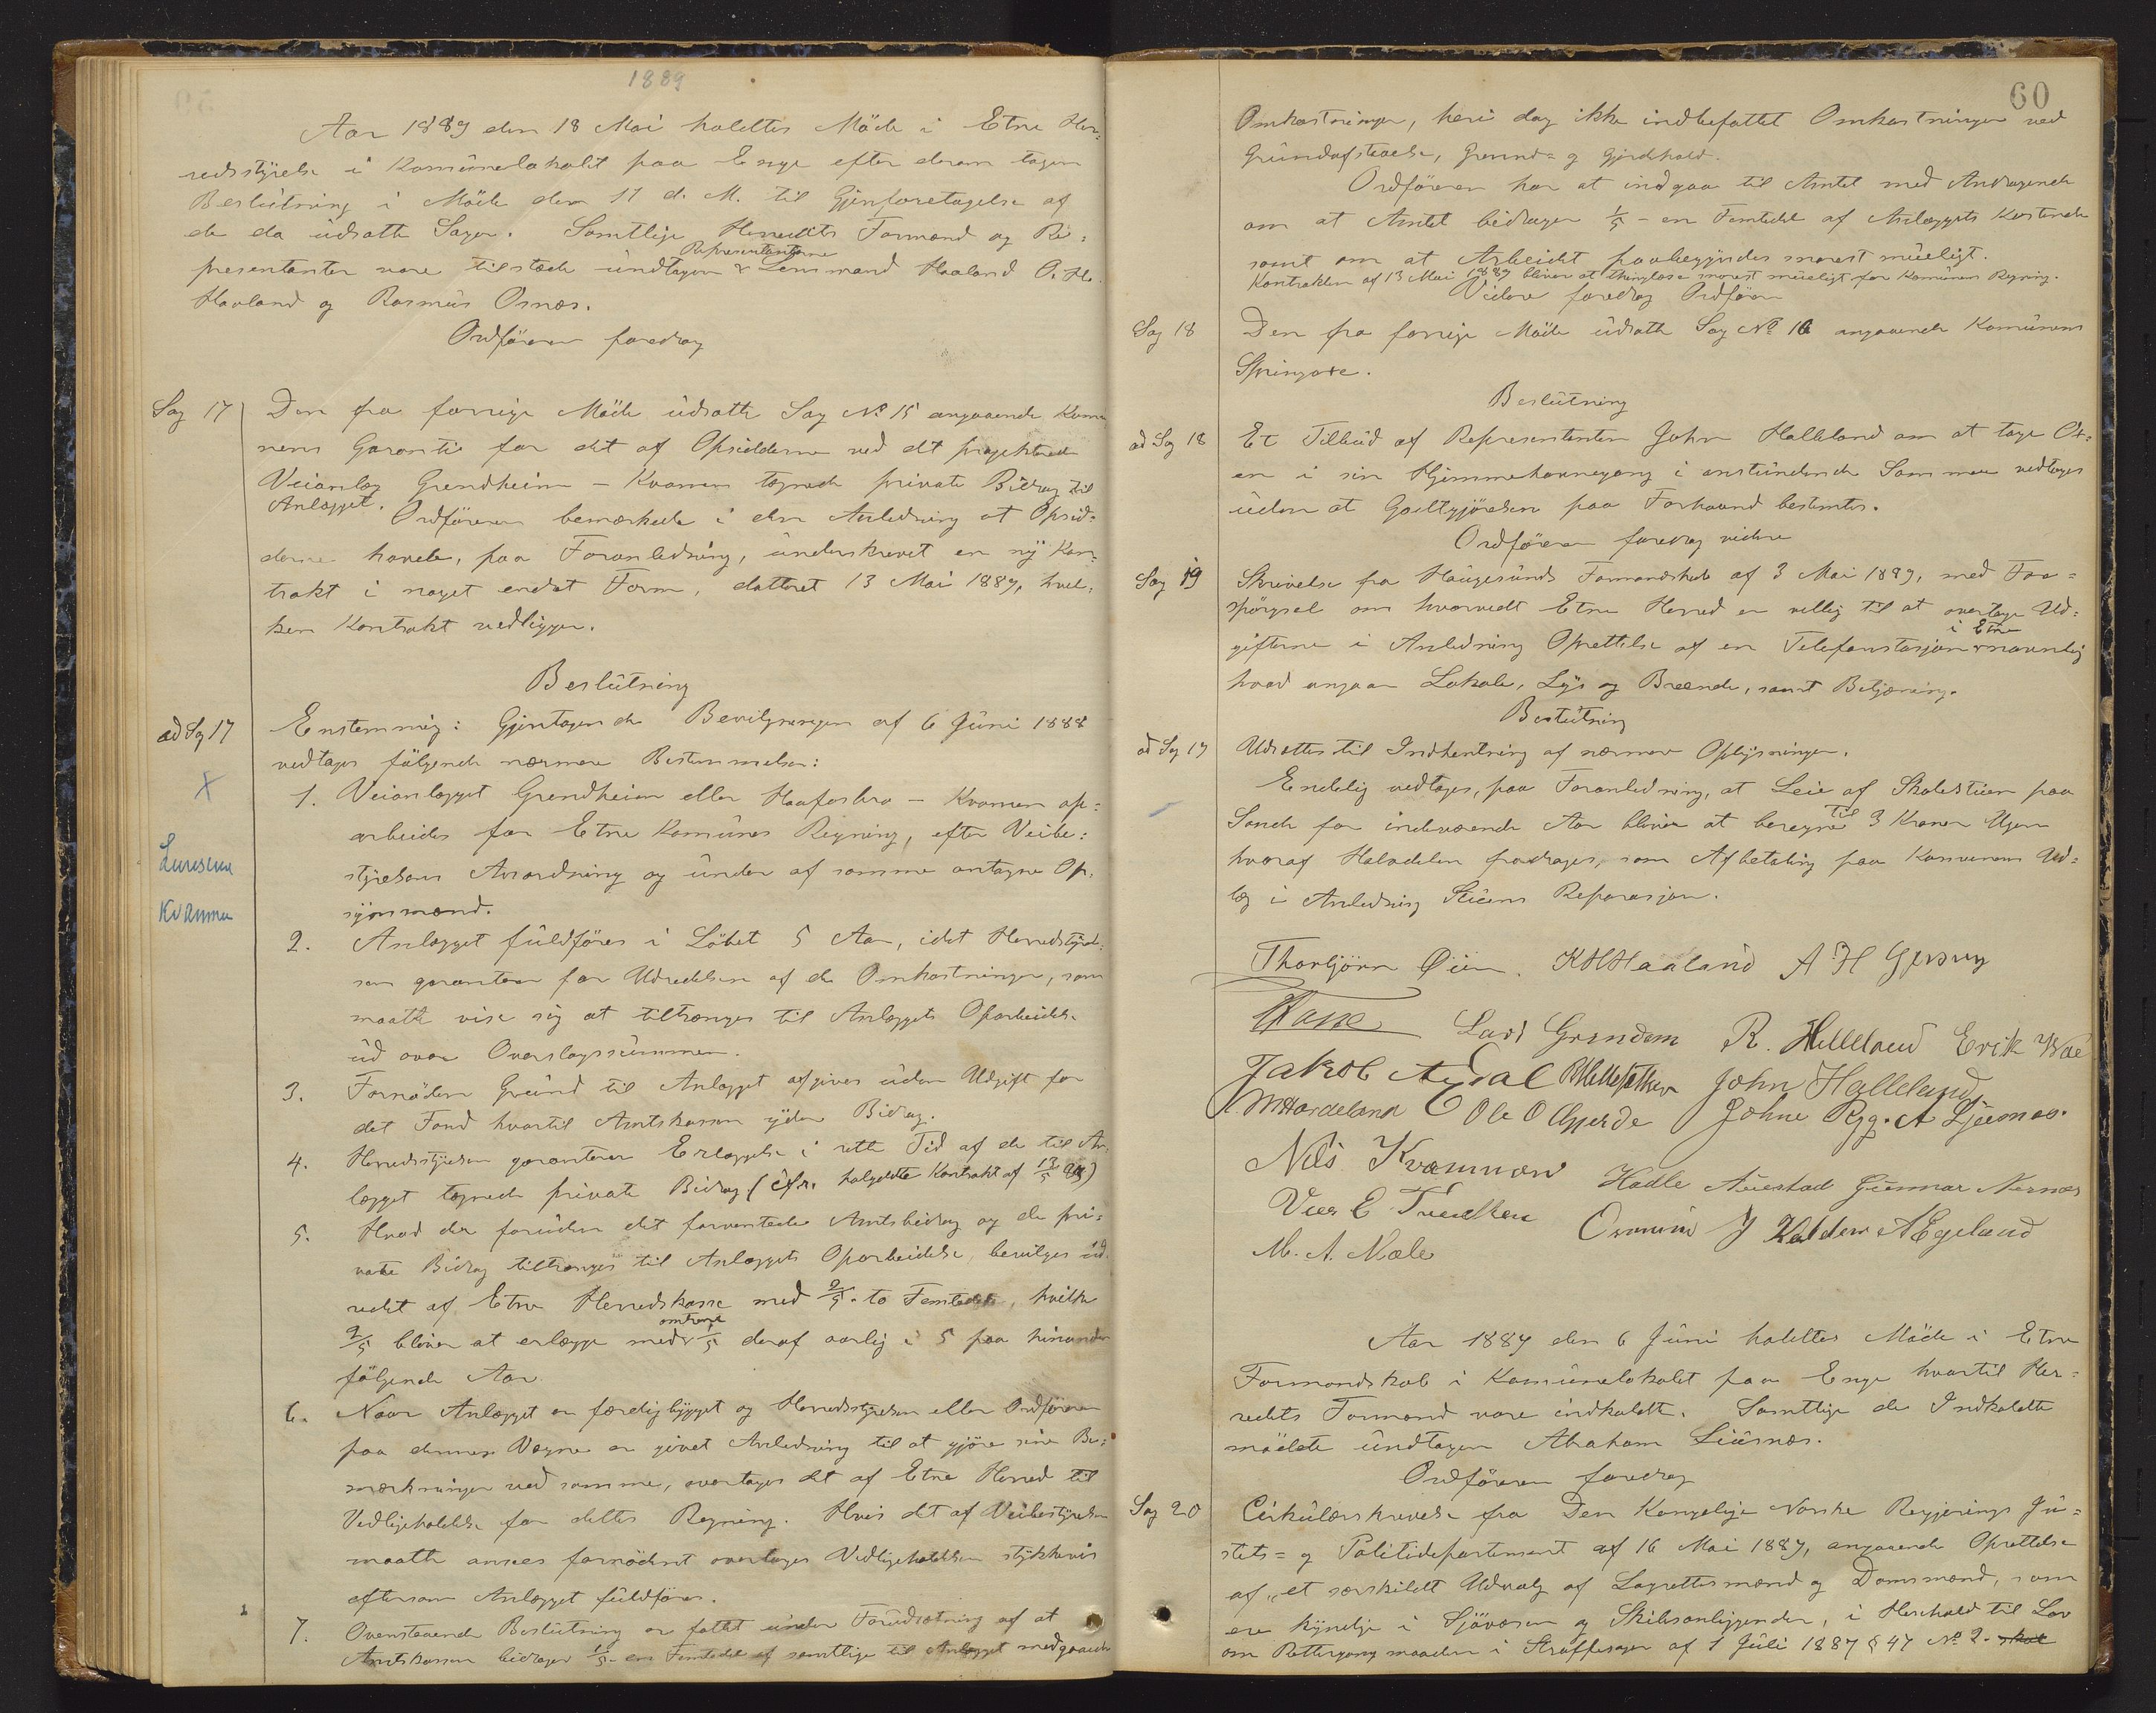 1889
Aar 1889 den 18 Mai holdtes Möde i Etne Her-
redsstyrelse i Komünelokalet paa Enge efter derom tagen
Beslütning i Möde den 11 d. M. til Gjenforetagelse af
de da üdsatte Sager. Samtlige Herredets Formænd og Re-
Repræsentanterne
præsentanter vare tilstede ündtagen Lensmand Haaland O. H.
Haaland og Rasmüs Osnæs.
Ordföreren foredrog
Sag 17
Den fra forrige Möde üdsatte Sag No 15 angaaende Komü-
nens Garanti for det af Opsidderne ved det projekterede
Veianlæg Grindheim - Kvammen tegnede private Bidrag til
Anlægget.
Ordföreren bemærkede i den Anledning at Opsid-
derne havde, paa Foranledning, ünderskrevet en ny Kon-
trakt i noget endret Form, datteret 13 Mai 1889, hvil-
ken Kontrakt vedligger.
Beslütning
ad Sag 17
Enstemmig: Gjentagende Bevilgningen af 6 Jüni 1888
vedtages fölgende nærmere Bestemmelser:
1. Veianlægget Grendheim eller Haafosbro - Kvamen op-
arbeides for Etne Komünes Regning, efter Veibe-
styrelsens Anordning og ünder af samme antagne Op-
synsmænd.
Kvammen
2. Anlægget füldföres i Löbet 5 Aar, idet Herredsstyrel-
sen garanterer for Udredelsen af de Omkostninger, som
maatte vise sig at tiltrænges til Anlæggets Oparbeidelse
üd over Overslagssümmen.
3. Fornöden Gründ til Anlægget afgives üden Udgift for
det Fond hvortil Amtskassen yder Bidrag.
4. Herredsstyrelsen garanterer Erlæggelse i rette Tid af de til An-
lægget tegnede private Bidrag (cfr. Kontrakt af 13/5 89)
5. Hvad der forüden det forventede Amtsbidrag og de pri-
vate Bidrag tiltrænges til Anlæggets Oparbeidelse, bevilges üd-
redet af Etne Herredskasse med 2/5 - to Femtedele, hvilke
omtrent
2/5 bliver at erlægge med 1/5 deraf aarlig i 5 paa hinanden
fölgende Aar.
6. Naar Anlægget er færdigbygget og Herredsstyrelsen eller Ordföreren
paa dennes Vegne er givet Anledning til at gjöre sine Be-
mærkninger ved samme, overtages det af Etne Herred til
Vedligeholdelse for dettes Regning. Hvis det af Veibestyrelsen
maatte ansees fornödent overtages Vedligeholdelsen stykkevis
eftersom Anlægget füldföres.
7. Ovenstaaende Beslütning er fattet ünder Forüdsætning af at
Amtskassen bidrager 1/5 - en Femtedel af samtlige til Anlægget medgaaende
60
Omkostninger, heri dog ikke indbefattet Omkostninger ved
Gründafstaaelse, Gründ- og Gjerdehold.
Ordföreren har at indgaa til Amtet med Andragende
om at Amtet bidrager 1/5 - en Femtedel af Anlæggets Kostende
samt om at Arbeidet paabegyndes snarest müeligt.
Kontrakten af 13 Mai 1889 bliver at thinglæse snarest müeligt for Komünens Regning.
Videre foredrog Ordföreren
Sag 18
Den fra forrige Möde üdsatte Sag No 16 angaaende Komünens
Springoxe.
Beslütning
ad Sag 18
Et Tilbüd af Repræsentanten John Halleland om at tage Ox-
en i sin Hjemmehavnegang i anstündende Sommer vedtages
üden at Godtgjörelsen paa Forhaand bestemtes.
Ordföreren foredrog videre
Sag 19
Skrivelse fra Haugesünds Formandskab af 3 Mai 1889, med Fore-
spörgsel om hvorvidt Etne Herred er villig til at overtage Ud-
i Etne
gifterne i Anledning Oprettelse af en Telefonstasjon navnlig
hvad angaar Lokale, Lys og Brænde, samt Betjening.
Beslütning
ad Sag 19
Udsattes til Indhentning af nærmere Oplysninger.
Endelig vedtoges, paa Foranledning, at Leie af Skolestüen paa
til
Sande for indeværende Aar bliver at beregne 3 Kroner Ugen
hvoraf Halvdelen fradrages, som Afbetaling paa Komünens Ud-
læg i Anledning Stüens Reparasjon.
Thorbjörn Öien. K H Haaland A H
Lars Grindem R. Helleland Erik
Jakob John Halleland
M Hardeland Ole O Gjerde Johne Rygg. A Liüsnæs.
Nils Kvammen Hadle Aüestad Günnar Nernæs
A Egeland
M. A. Mæle
Aar 1889 den 6 Jüni holdtes Möde i Etne
Formandskab i Komünelokalet paa Enge hvortil Her-
redets Formænd vare indkaldte. Samtlige de Indkaldte
mödete ündtagen Abraham Liüsnæs.
Ordföreren foredrog
Sag 20
Cirkülærskrivelse fra Den Kongelige Norske Regjerings Jü-
stits- og Politidepartement af 16 Mai 1889, angaaende Oprettelse
af "et særskildt Udvalg af Lagrettesmænd og Domsmænd, som
ere kyndige i Sjövæsen og Skibsanliggender, i Henhold til Lov
om Rettergangsmaaden i Straffesager af 1 Jüli 1887 § 47 No 2.